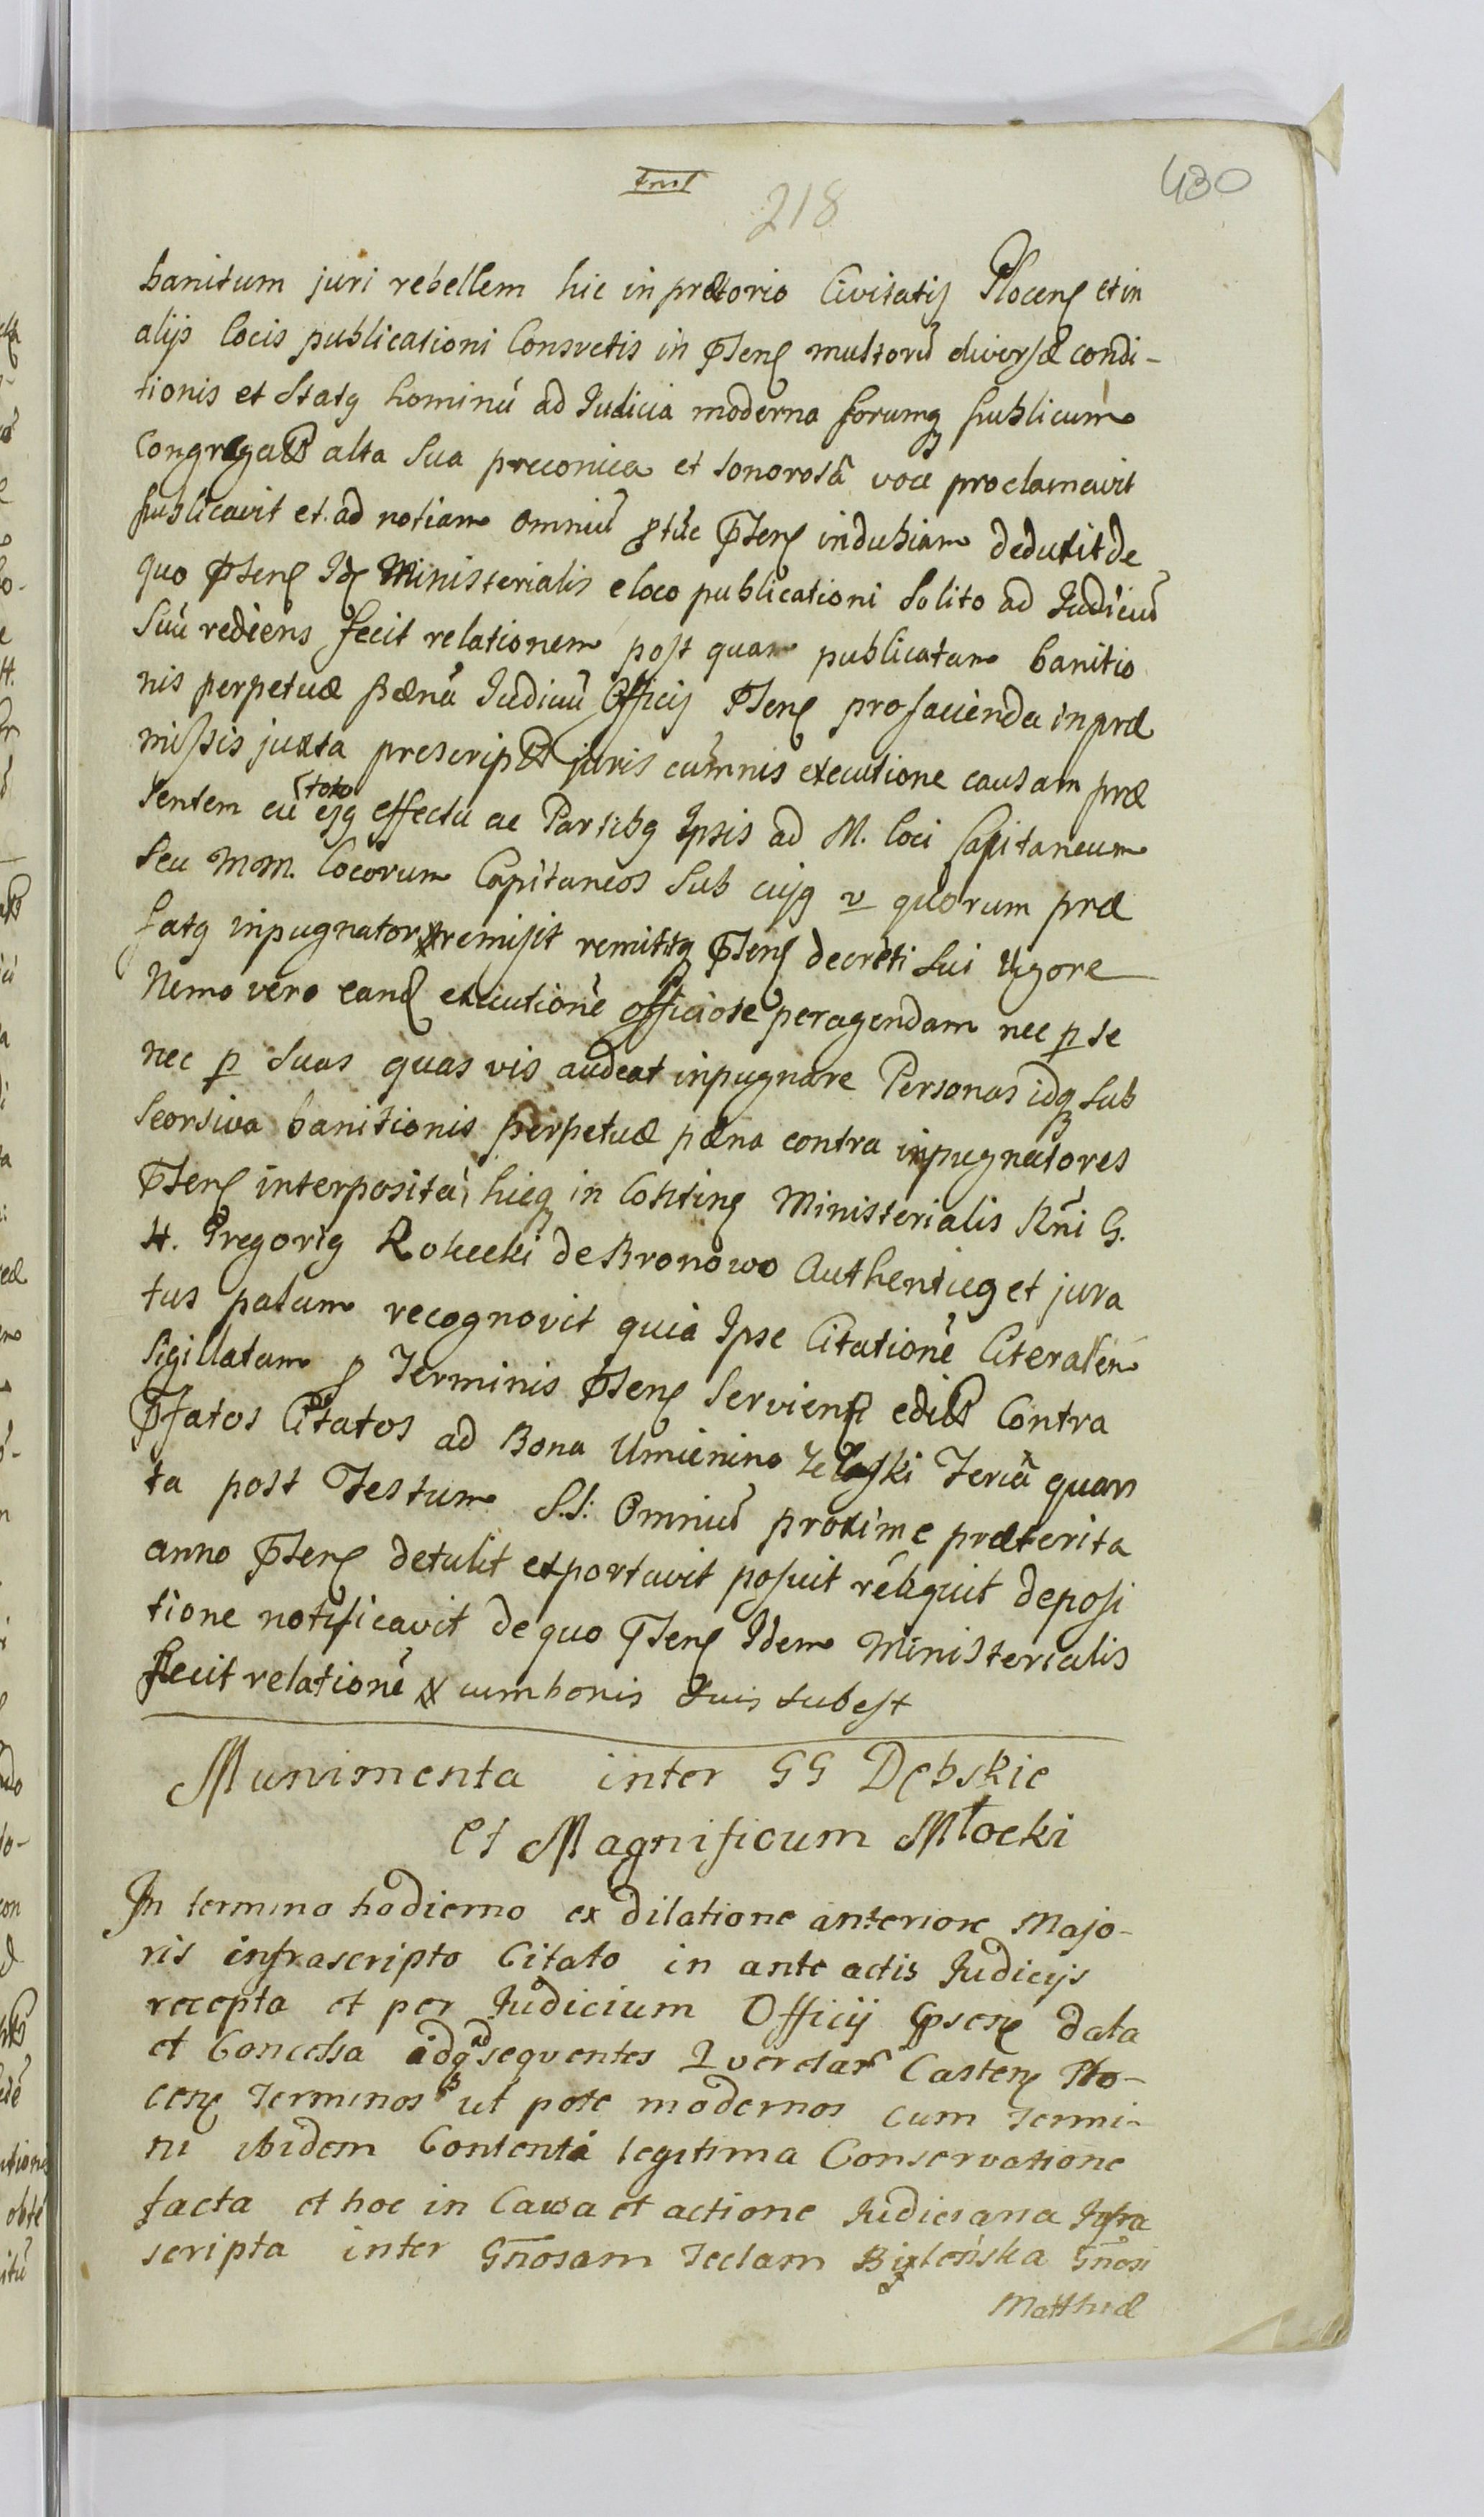 218
430
banitum juri rebellem hic in prætorio Civitatis Plocens et in
alijs locis publicationi Consvetis in Psens multorũ diversæ condi-
tionis et Statq hominũ ad Judicia moderna forumq publicum
Congregatt alta Sua preconica et sonorosa voce proclamavit
publicavit et ad notiam omniũ ptũc Psens indubiam deduxit de
quo Psens Ids Ministerialis e loco publicationi Solito ad Judiciũ
Suũ rediens fecit relationem post quam publicatam banitio
nis perpetuæ pænã Judiciũ Officij Psens pro facienda in præ
missis juxta prescriptt juris cumnis executione causam præ
sentem cũ toto ejq effectu ac Partibq Ipsis ad M. loci Capitaneum
Seu MM. locorum Capitaneos Sub cujq v quorum præ
fatq inpugnator remisit remititq Psens decreti Sui vigore
Nemo vero eand executionẽ officiose peragendam nec p se
nec p Suas quas vis audeat inpugnare Personas idq Sub
Seorsiva banitionis perpetuæ pæna contra inpugnatores
Psens interposita, hicq in Conting Ministerialis Rñi G.
H. Gregoriq Rokicki de Bronowo Authenticq et jura
tus palam recognovit quia Ipse Citationẽ Literalem
Sigillatam p Terminis Psens Servients editt Contra
Pfatos Citatos ad Bona Umienino Zelaski Feria quar
ta post Festum S.S: Omniũ proxime præterita
anno Psens detulit exportavit posuit reliquit deposi
tione notificavit de quo Psens Idem Ministerialis
fecit relationẽ cum bonis Suis Subest
Munimenta inter GG Dębskie
Et Magnificum Młocki
In termino hodierno ex dilatione anteriore Majo-
ris infrascripto Citato in ante actis Judicijs
recepta et per Judicium Officij Psens data
et Concessa adq ad sequentes Querelar Castens Plo-
cens Terminos ut pote modernos cum Termi-
ni ibidem Contenta legitima Conservatione
facta et hoc in Causa et actione Judiciaria Infra
scripta inter Gnosam Teclam Bieleńska Gnosi
Matthiæ